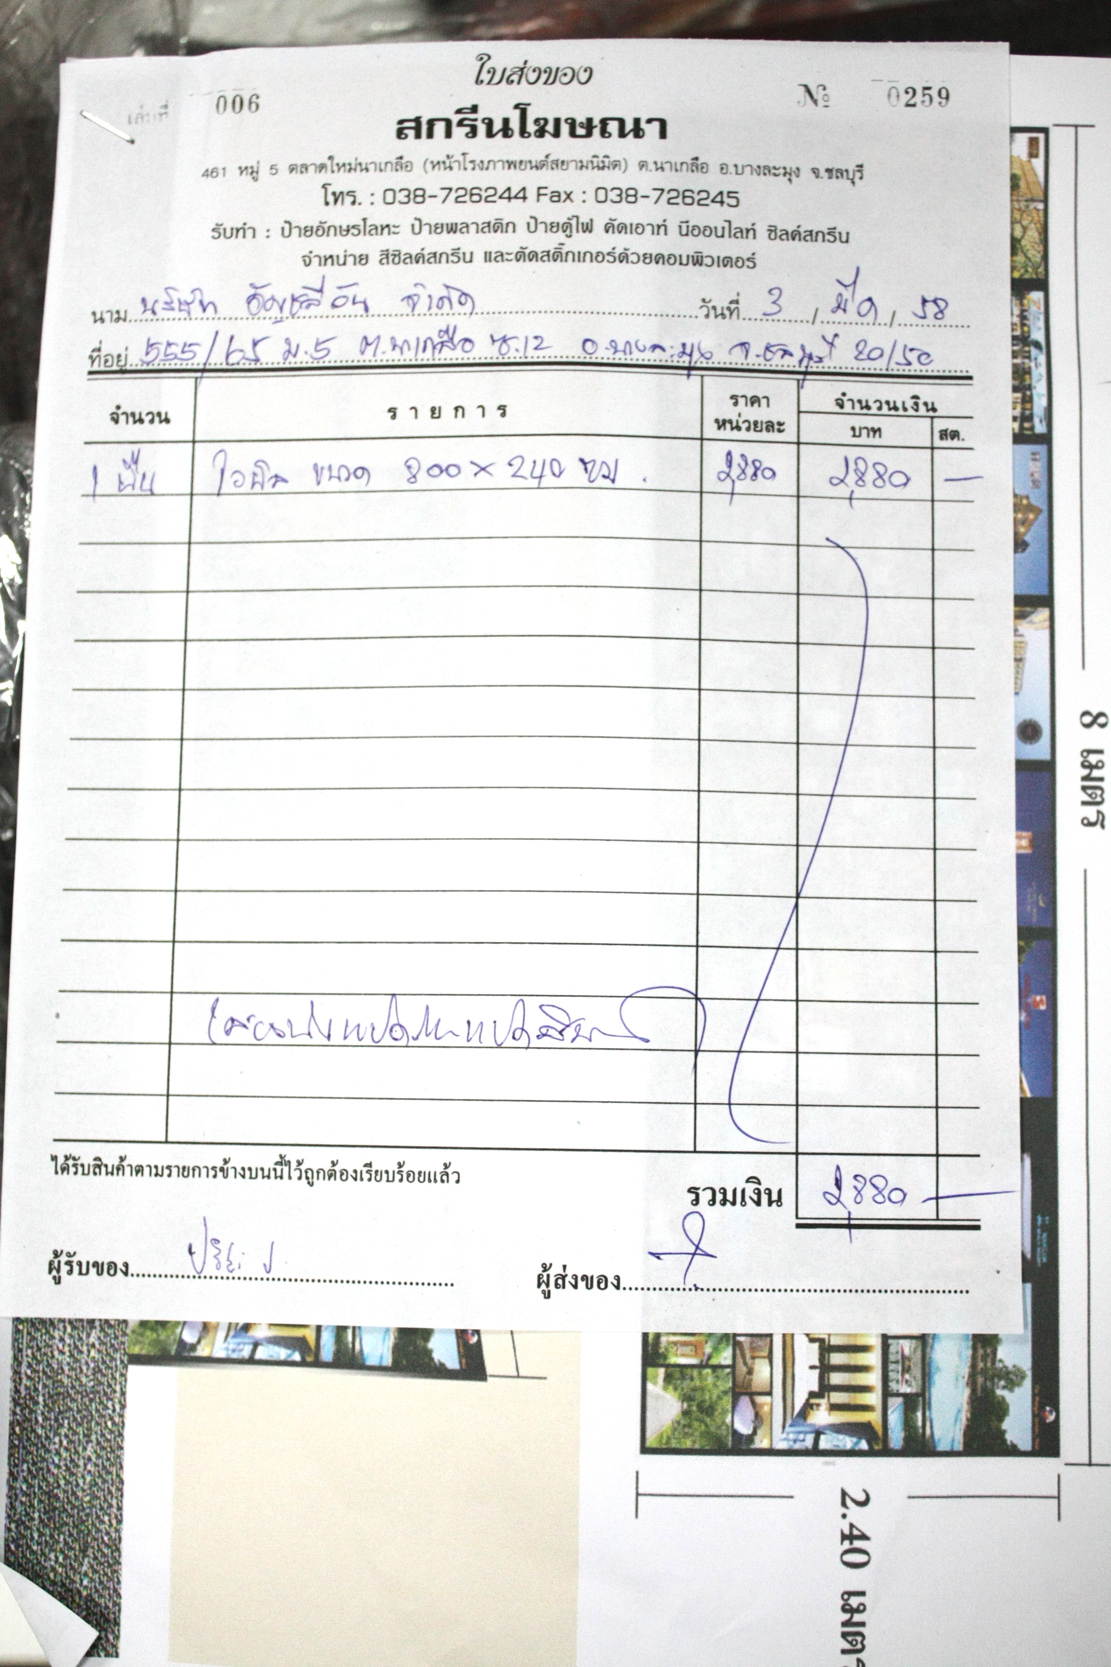 ใบส่งของ
เล่มที่ 006 № 0259
สกรีนโฆษณา
461 หมู่ 5 ตลาดใหม่นาเกลือ (หน้าโรงภาพยนต์สยามนิมิต) ต.นาเกลือ อ.บางละมุง จ.ชลบุรี
โทร. : 038-726244 Fax : 038-726245
รับทำ : ป้ายอักษรโลหะ ป้ายพลาสติก ป้ายตู้ไฟ คัดเอาท์ นีออนไลท์ ซิลค์สกรีน
จำหน่าย สีซิลค์สกรีน และตัดสติ๊กเกอร์ด้วยคอมพิวเตอร์
นาม บริษัท จำกัด วันที่ 3 / มีค / 58
ที่อยู่ 555/65 ม.5 ต.นาเกลือ ซ.12 อ.บางละมุง จ.ชลบุรี 20150
จำนวน รายการ ราคาหน่วยละ จำนวนเงิน
บาท สต.
1 ผืน ไวนิล ขนาด 800 x 240 ซม. 2,880 2,880 -
ได้รับสินค้าตามรายการข้างบนนี้ไว้ถูกต้องเรียบร้อยแล้ว
รวมเงิน 2,880 -
ผู้รับของ
ผู้ส่งของ
8 เมตร
2.40 เมตร